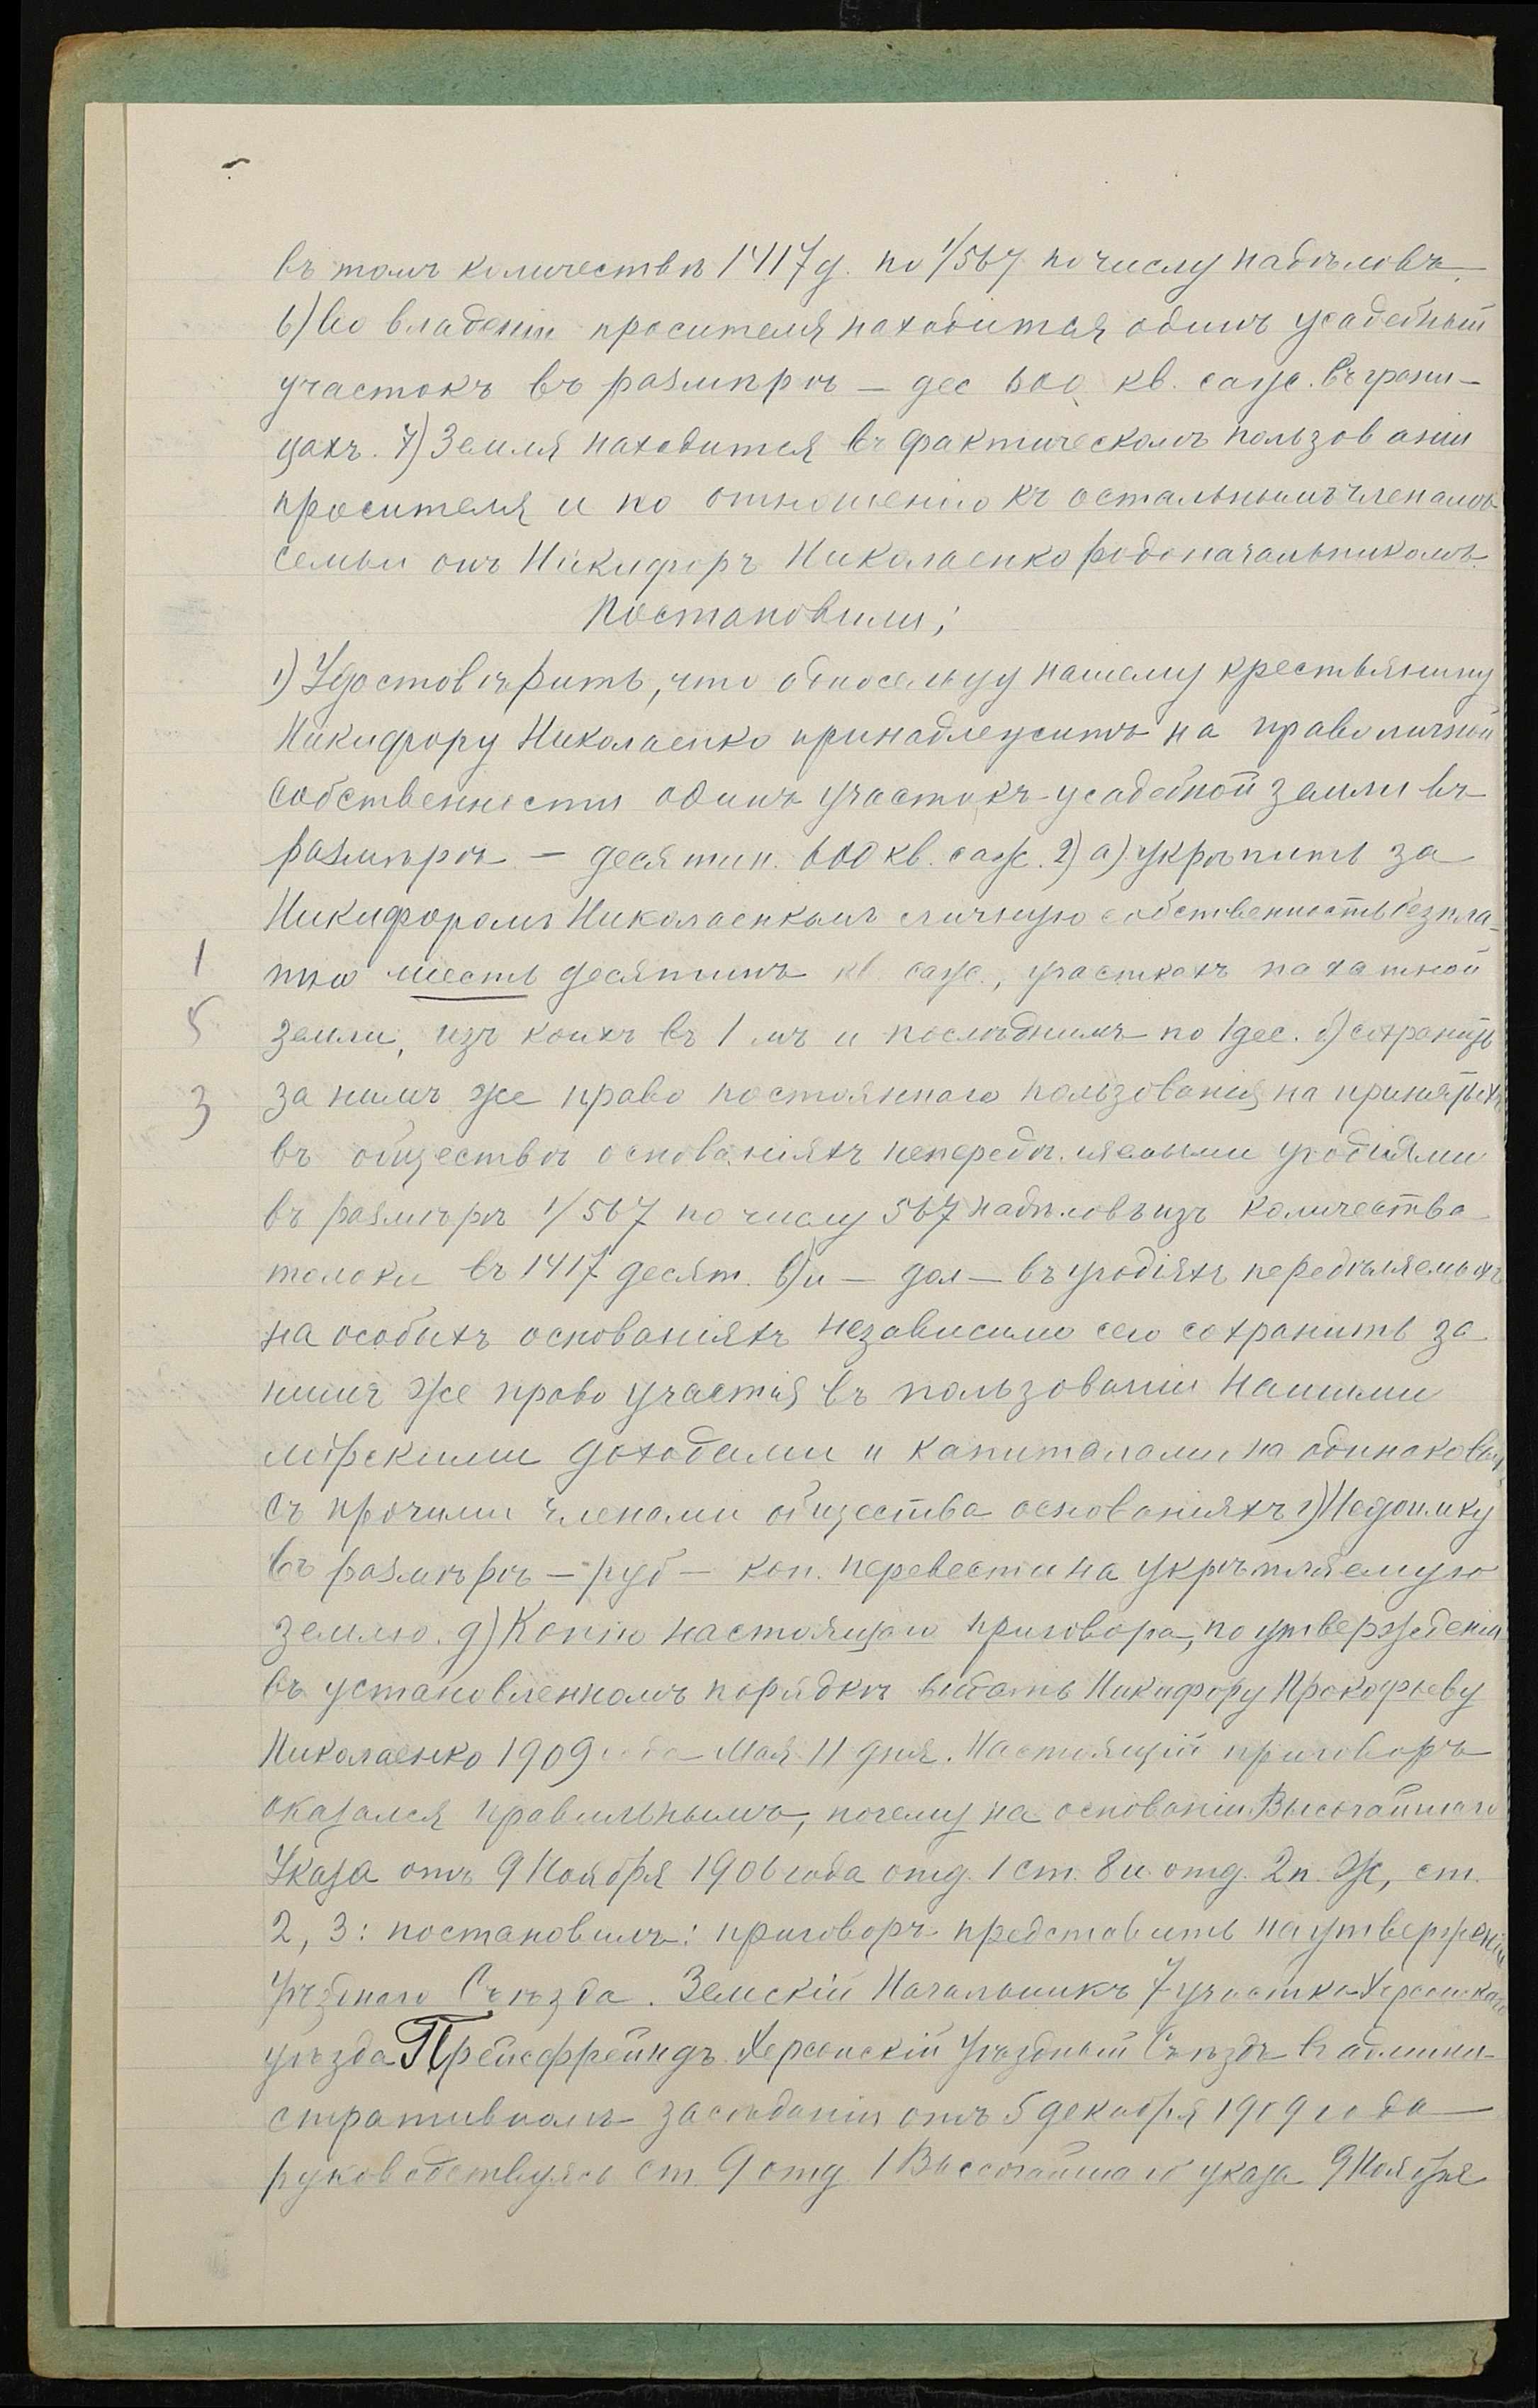 въ томъ количествѣ 1417 д. по 1/567 по числу надѣловъ.
6) Во владеніи просителя находится одинъ усадебный
участокъ въ размѣрѣ — дес 600 кв. саж. въ грани-
цахъ. 7) Земля находится въ фактическомъ пользованіи
просителя и по отношенію къ остальнымъ членамъ
семьи онъ Никифоръ Николаенко родоначальникомъ.
Постановили;
1) Удостовѣрить, что односельцу нашему крестьянину
Никифору Николаенко принадлежитъ на праве личной
собственности одинъ участокъ усадебной земли въ
размѣрѣ — десятин. 600 кв. саж. 2) а) укрѣпить за
Никифоромъ Николаенкымъ личную собственность безпла-
1 тно шесть десятинъ кв. саж., участкахъ пахатной
5 земли, изъ коихъ въ 1 мъ и последнимъ по 1 дес. б) сохранить
3 за нимъ же право постояннаго пользованія на принятыхъ
въ обществѣ основаніяхъ непередѣляемыми угодіями
въ размѣрѣ 1/567 по числу 567 надѣловъ изъ количества
толоки въ 1417 десят. в) и — дол — въ угодіяхъ передѣляемыхъ
на особыхъ основаніяхъ независимо сего сохранить за
нимъ же право участія въ пользованіи нашими
мірскими доходами и капиталами на одинаковыхъ
съ прочими членами общества основаніяхъ г) Недоимку
въ размѣрѣ — руб — коп. перевести на укрѣпляемую
землю. д) Копію настоящаго приговора, по утвержденіи
въ установленномъ порядкѣ выдать Никифору Прокофьеву
Николаенко 1909 года Мая 11 дня. Настоящій приговоръ
оказался правильнымъ, почему на основаніи Высочайшаго
Указа отъ 9 Ноября 1906 года отд. 1 ст. 8 и отд. 2 п. Ж, ст.
2, 3: постановилъ: приговоръ представить на утвержденіе
Уѣзднаго Съѣзда. Земскій Начальникъ 7 участка Херсонскаго
уѣзда Прейсфрейндъ. Херсонскій Уѣздный Съѣздъ въ админи-
стративномъ засѣданіи отъ 5 декабря 1909 года
руководствуясь ст. 9 отд 1 Высочайшаго указа 9 Ноября